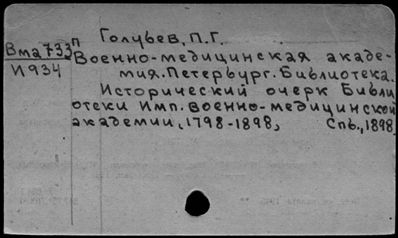 Голубев, П.Г.
Вма733п Военно-медицинская акаде-
И934 мия. Петербург. Библиотека.
Исторический очерк Библи
отеки Имп. военно-медицинской
академии, 1798-1898, Спб., 1898